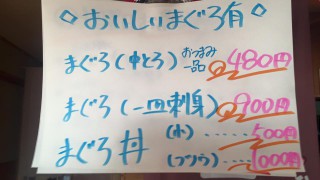 ◇おいしいまぐろ有◇
まぐろ(中とろ) おつまみ一品 480円
まぐろ(一皿刺身) 900円
まぐろ丼 (小)-----500円
(フツウ)---1000円